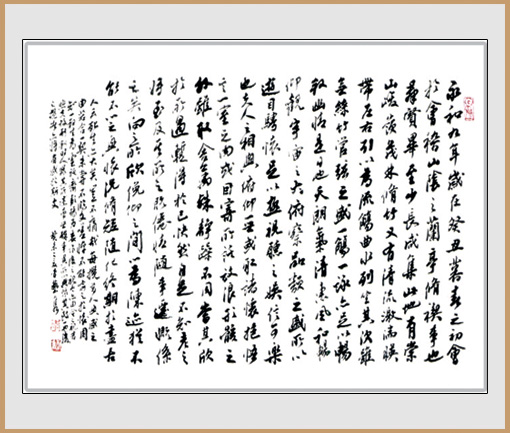 永和九年歲在癸丑暮春之初會
於會稽山陰之蘭亭脩禊事也
群賢畢至少長咸集此地有崇
山峻嶺茂林脩竹又有清流激湍映
帶左右引以為流觴曲水列坐其次雖
無絲竹管弦之盛一觴一詠亦足以暢
敘幽情是日也天朗氣清惠風和暢
仰觀宇宙之大俯察品類之盛所以
遊目騁懷足以極視聽之娛信可樂
也夫人之相與俯仰一世或取諸懷抱悟
言一室之內或因寄所託放浪形骸之
外雖取舍萬殊靜躁不同當其欣
於所遇暫得於己快然自足不知老之
將至及其所之既倦情隨事遷感慨係
之矣向之所欣俛仰之間以為陳迹猶不
能不以之興懷況脩短隨化終期於盡古
人云死生亦大矣豈不痛哉每攬昔人興感之